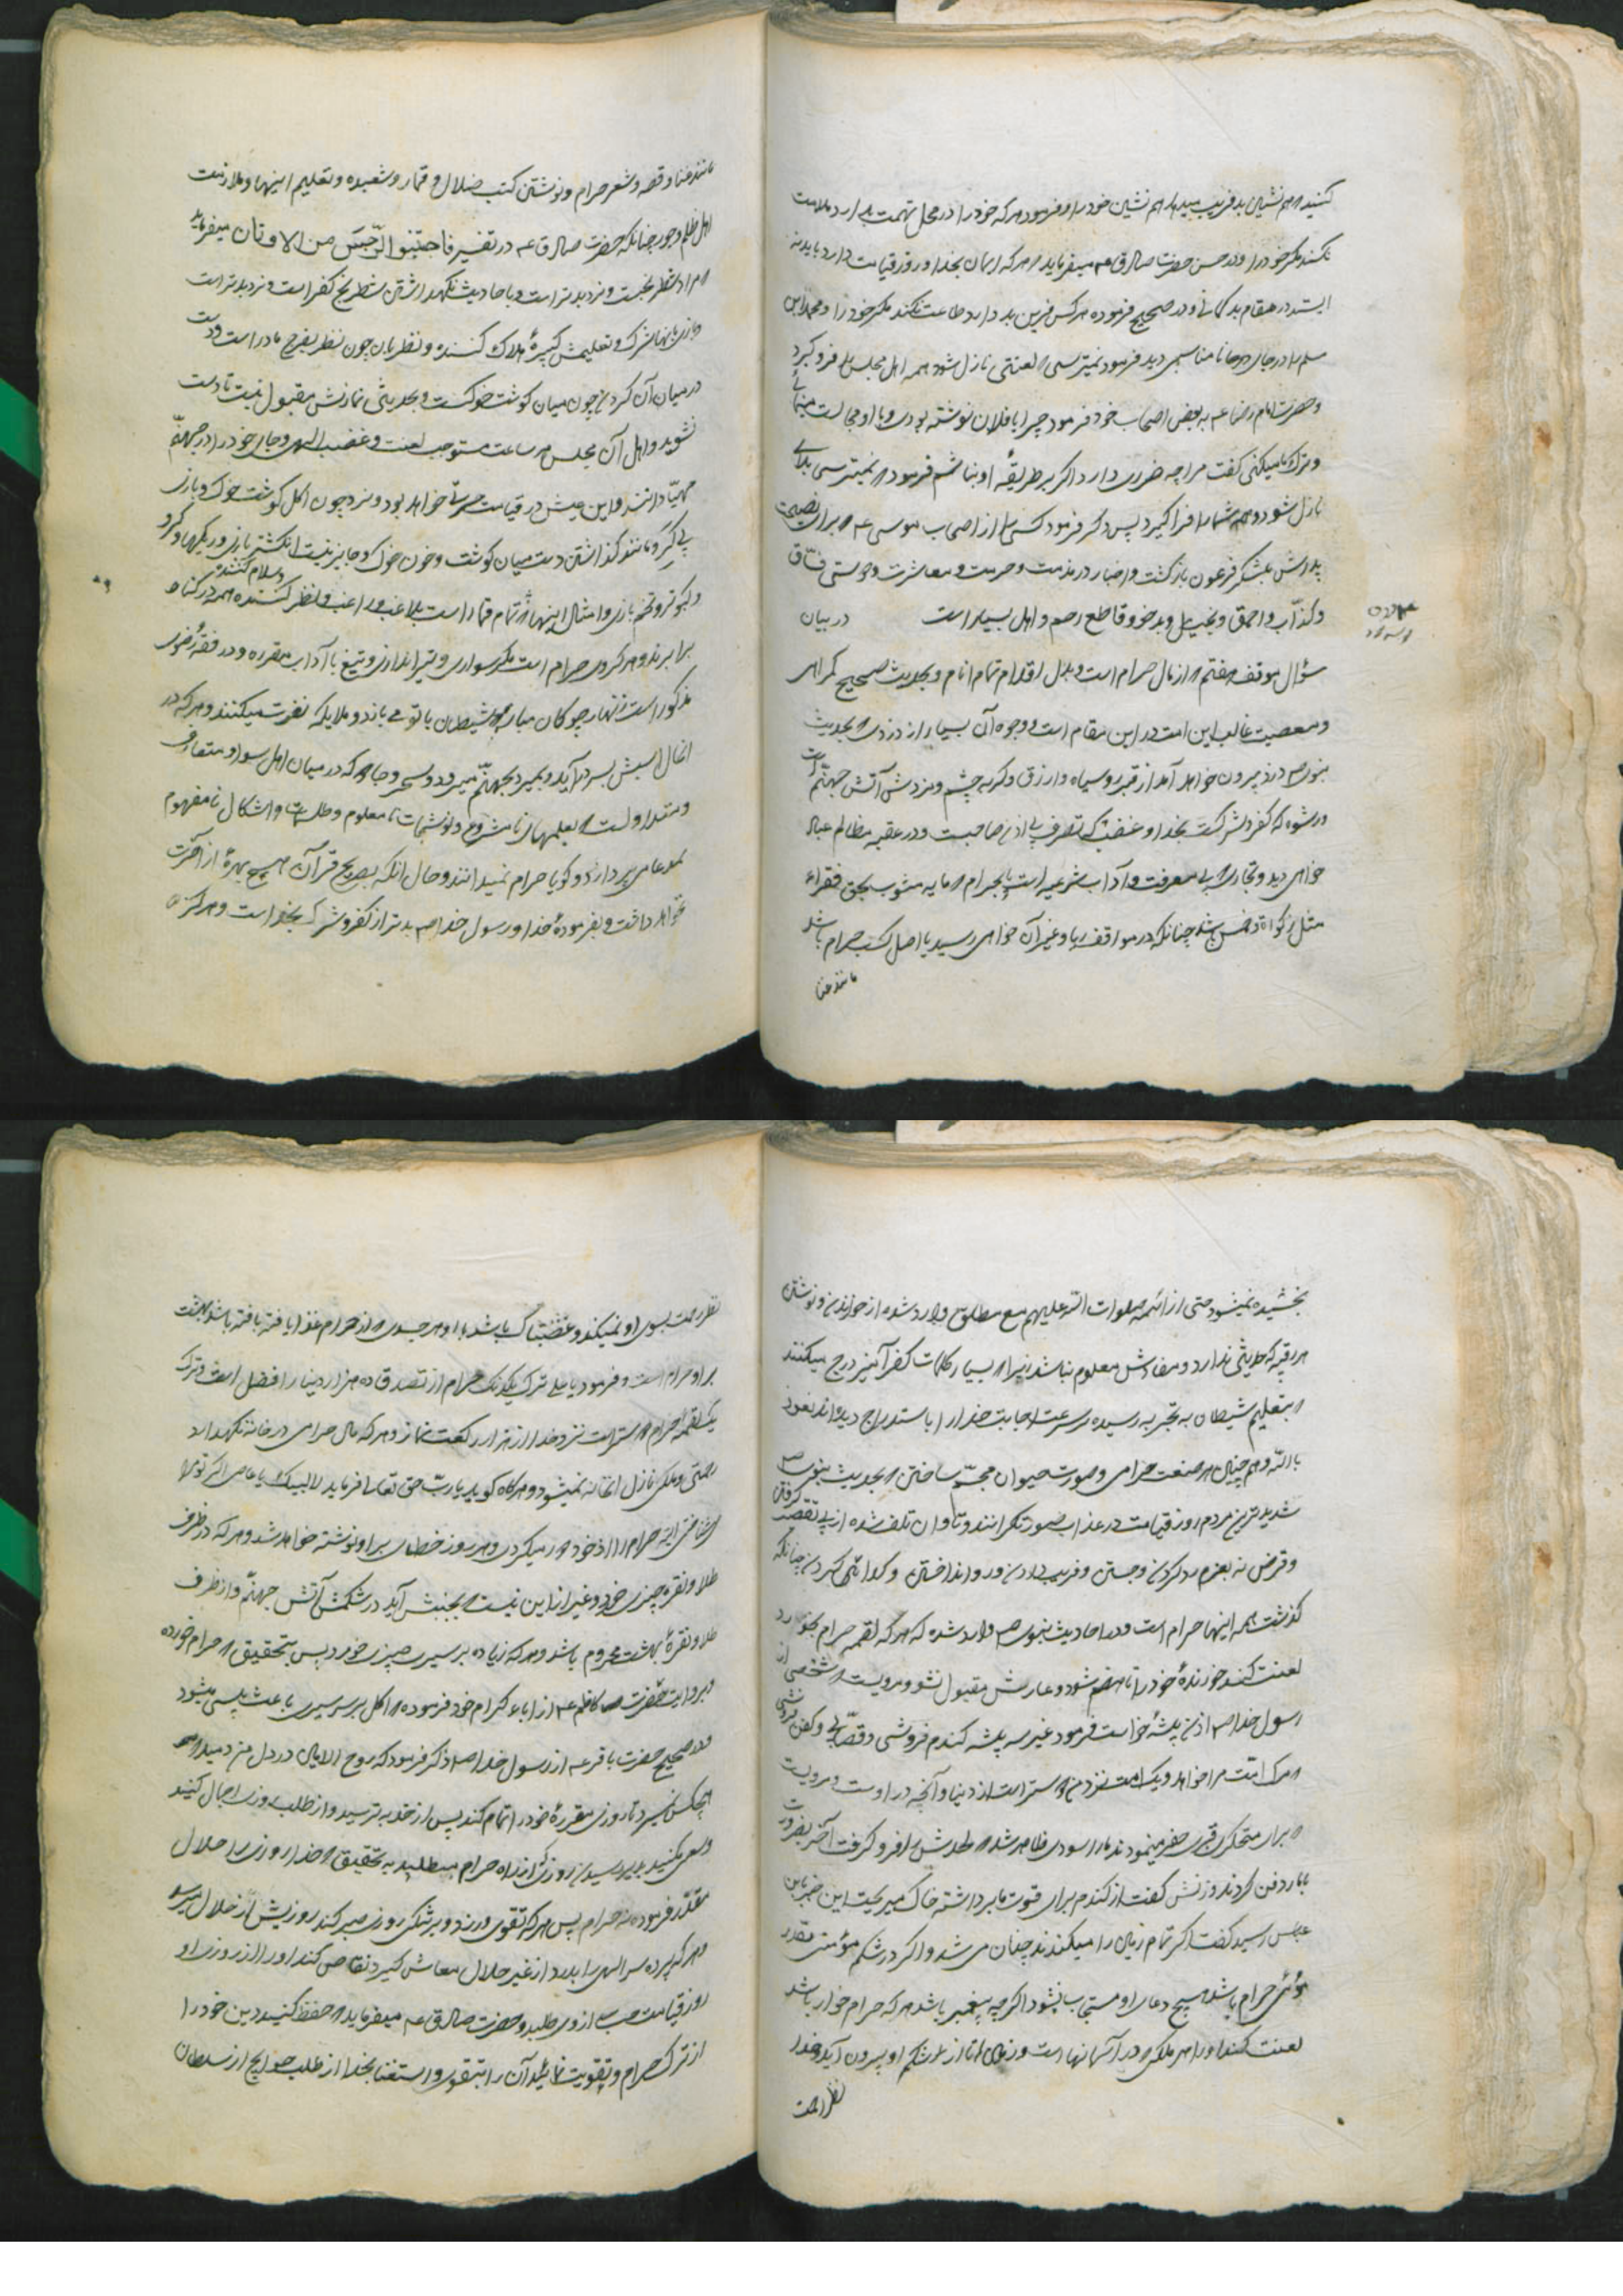 کنید که هم نشین بد فریب میدهد هم نشین خود را و فرمود هر که خود را در محل تهمت بدارد ملامت
نکند مگر خود را و در حسن حضرت صادق ع میفرماید که هر که ایمان بخدا و روز قیامت دارد باید نه
ایستد در مقام بدگمانی و در صحیح فرموده هر کس قرین بد دارد طاعت نکند مگر خود را و محمد ابن
مسلم را در جای نامناسبی دید فرمود نمیترسی که لعنتی نازل شود همه اهل مجلس را فرو گیرد
و حضرت امام رضا ع به بعض اصحاب خود فرمود چرا با فلان نوشته بودی و با او مجالست مینمائی
و ترک ما میکنی گفت مرا چه ضرری دارد اگر بر طریقه او نباشم فرمود که نمیترسی بلائی
نازل شود و همه شما را فرا گیرد پس ذکر فرمود کسی را از اصحاب موسی ع که برای نصیحت
پدرش بلشکر فرعون بازگشت و اخبار در مذمت و حرمت و معاشرت و دوستی فسّاق
و کذّاب و احمق و بخیل و بدخو و قاطع رحم و اهل بسیار است در بیان
سؤال موقف هفتم که از مال حرام است و بدل اقدام تمام انام و بحدیث صحیح گمراهی
و معصیت غالب این امت در این مقام است و وجوه آن بسیار از دزدی که بحدیث
نبوی ص دزد بیرون خواهد آمد از قبر رو سیاه و ازرق و گربه چشم و مزدش آتش جهنّم است
و رشوه که کفر و شرکست بخدا و غضب که تصرف بی اذن صاحبت و در عقبه مظالم عباد
خواهی دید و تجارت بی معرفت و آداب شرعیه است یا بحرام که مایه مشوب بحق فقراء
مثل زکوة و خمس باشد چنانکه در مواقف ربا و غیر آن خواهی رسید یا اصل کسب حرام باشد
مانند غنا
مانند غنا و قصه و شعر حرام و نوشتن کتب ضلال و قمار و شعبده و تعلیم اینها و ملازمت
اهل ظلم و جور چنانکه حضرت صادق ع در تفسیر فاجتنبوا الرّجس من الاوثان میفرماید
که مراد شطرنجست و نرد بدتر است و باحادیث نگهداشتن شطرنج کفر است و نرد بدتر است
و بازی بانها شرک و تعلیمش کبیره هلاک کننده و نظر بان چون نظر بفرج مادر است و دست
در میان آن کردن چون میان گوشت خوکست و بحدیثی نمازش مقبول نیست تا دست
نشوید و اهل آن مجلس هر ساعت مستوجب لعنت و غضب الهی و جای خود را در جهنّم
مهیّا دانند و این عیش در قیامت حسرت خواهد بود و نرد چون اکل گوشت خوک و بازی
بی گرو مانند گذاشتن دست میان گوشت و خون خوک و جایز نیست انگشتر بازی و ریگها و گردو
و کبوتر و تخم بازی و امثال اینها که تمام قمار است بلاعب و راغب و نظر کننده و سلام کننده همه در گناه
برابرند و هر گروی حرام است مگر سواری و تیر اندازی و تیغ با آداب مقرره و در فقه رضوی
مذکور است زنهار چوگان مباز که شیطان با تو می بازد و ملایکه نفرت میکنند و هر که در
انحال اسبش بسر درآید و بمیرد بجهنّم میرود و سحر و جادو که در میان اهل سواد متعارف
و متداولست که بعلمهای نامشروع و نوشتجات نامعلوم و طلسمات و اشکال نامفهوم
بمدعا می پردازند و گویا حرام نمیدانند و حال آنکه بصریح قرآن هیچ بهره از آخرت
نخواهد داشت و بفرموده خدا و رسول خدا ص بدتر از کفر و شرک بخدا است و هرگز
بخشیده نمیشود حتی از ائمه صلوات الله علیهم منع مطلق وارد شده از خواندن و نوشتن
هر رقیه که حدیثی ندارد و مفادش معلوم نباشد زیرا که بسیار کلمات کفر آمیز درج میکنند
که بتعلیم شیطان به تجربه رسیده و سرعت اجابت خدا را باستدراج دیده اند نعوذ
بالله و هم چنان هر صنعت حرامی و صورت حیوان مجسّم ساختن که بحدیث نبوی ص
شدیدترین مردم روز قیامت در عذاب صورتگرانند و تاوان تلف شده از بی تقصیر گرفتن
و قرض نه بعزم رد کردن و جستن و فریب دادن و رو انداختن و گدائی کردن چنانکه
گذشت همه اینها حرام است و در احادیث نبوی ص وارد شده که هر که لقمه حرام بخورد
لعنت کند خورنده خود را تا هضم شود و دعایش مقبول نشود و مرویست که شخصی از
رسول خدا ص اذن پیشه خواست فرمود غیر سه پیشه گندم فروشی و قصّابی و کفن فروشی
که مرگ امت مرا خواهد و یک امت نزد من بهتر است از دنیا و آنچه در اوست و مرویست
که برای محتکری قبری حفر مینمودند مار اسودی ظاهر شد که لحدش را فرو گرفت آخر بضرورت
با مار دفن کردند و زنش گفت از گندم برای قوت ما برداشته خاک میریخت این خبر بابن
عباس رسید گفت اگر تمام زمین را میکندند چنان می شد و اگر در شکم مؤمنی مقدار
موئی حرام باشد هیچ دعای او مستجاب نشود اگرچه پیغمبر باشد هر که حرام خوار باشد
لعنت کند او را هر ملکی که در آسمانها است و زمین تا از شکم او بیرون آید و خدا
نظر رحمت
نظر رحمت بسوی او نمیکند و غضبناک باشد با او و هر جسدی که از حرام غذا یافته باشد بهشت
بر او حرام است و فرمود یا علی ترک یکدانک حرام از تصدق ده هزار دینار افضل است و ترک
یک لقمه حرام بهتر است نزد خدا از هزار رکعت نماز و هر که مال حرامی در خانه نگهدارد
رحمتی و ملکی نازل آنخانه نمیشود و هرگاه گوید یا ربّ حق تعالی فرماید لا لبیک یا عاصی اگر تو مرا
میشناختی البته حرام را از خود دور میکردی و هر روز خطای بر او نوشته خواهد شد و هر که در ظرف
طلا و نقره چیزی خورد و غیر از این نیست که بجنبش آید در شکمش آتش جهنّم و از ظرف
طلا و نقرهٔ بهشت محروم باشد و هر که زیاده بر سیری چیزی خورد پس بتحقیق که حرام خورده
و بروایت حضرت کاظم ع از اباء کرام خود فرموده که اکل بر سیری باعث پیسی میشود
و در صحیح حضرت باقر ع از رسول خدا ص ذکر فرمود که روح الامین در دل من دمید که
هیچکس نمیرد تا روزی مقرره خود را تمام کند پس از خدا بترسید و از طلب روزی اجمال کنید
و سعی نکنید بدیر رسیدن روزی که از راه حرام بطلبید به تحقیق که خدا روزی را حلال
مقدّر فرموده نه حرام پس هر که تقوی ورزد و بر تنگی روزی صبر کند روزیش از حلال میرسد
و هر که پرده سر الهی را بدرد از غیر حلال معاش گیرد تقاص کند او را از روزی او
روز قیامت حساب از وی طلبد و حضرت صادق ع میفرماید که حفظ کنید دین خود را
از ترک حرام و تقویت نمائید آن را بتقوی و استغنا بخدا از طلب حوایج از سلطان